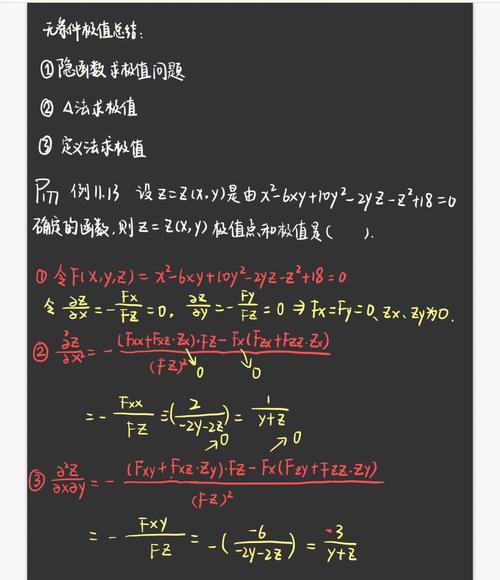 无条件极值总结:
①隐函数求极值问题
② Δ法求极值
③ 定义法求极值
P177 例11.13 设 z=z(x,y)是由 x²-6xy+10y²-2yz-z²+18=0
确定的函数,则 z=z(x,y) 极值点和极值是( ).
① 令F(x,y,z)=x²-6xy+10y²-2yz-z²+18=0
令 ∂z/∂x=-Fx/Fz=0, ∂z/∂y=-Fy/Fz=0 ⇒ Fx=Fy=0、zx、zy为0.
② ∂²z/∂x²=-((Fxx+Fxz·zx)·Fz-Fx(Fzx+Fzz·zx))/(Fz)²
0 0
=-Fxx/Fz=-(2/(-2y-2z))=1/(y+z)
0 0
③ ∂²z/∂x∂y=-((Fxy+Fxz·zy)·Fz-Fx(Fzy+Fzz·zy))/(Fz)²
=-Fxy/Fz=-(-6/(-2y-2z))=-3/(y+z)